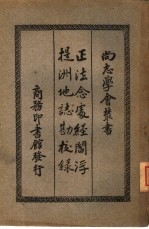 尚志學會叢書
正法念處經閻浮
提洲地誌勘校錄
商務印書館發行